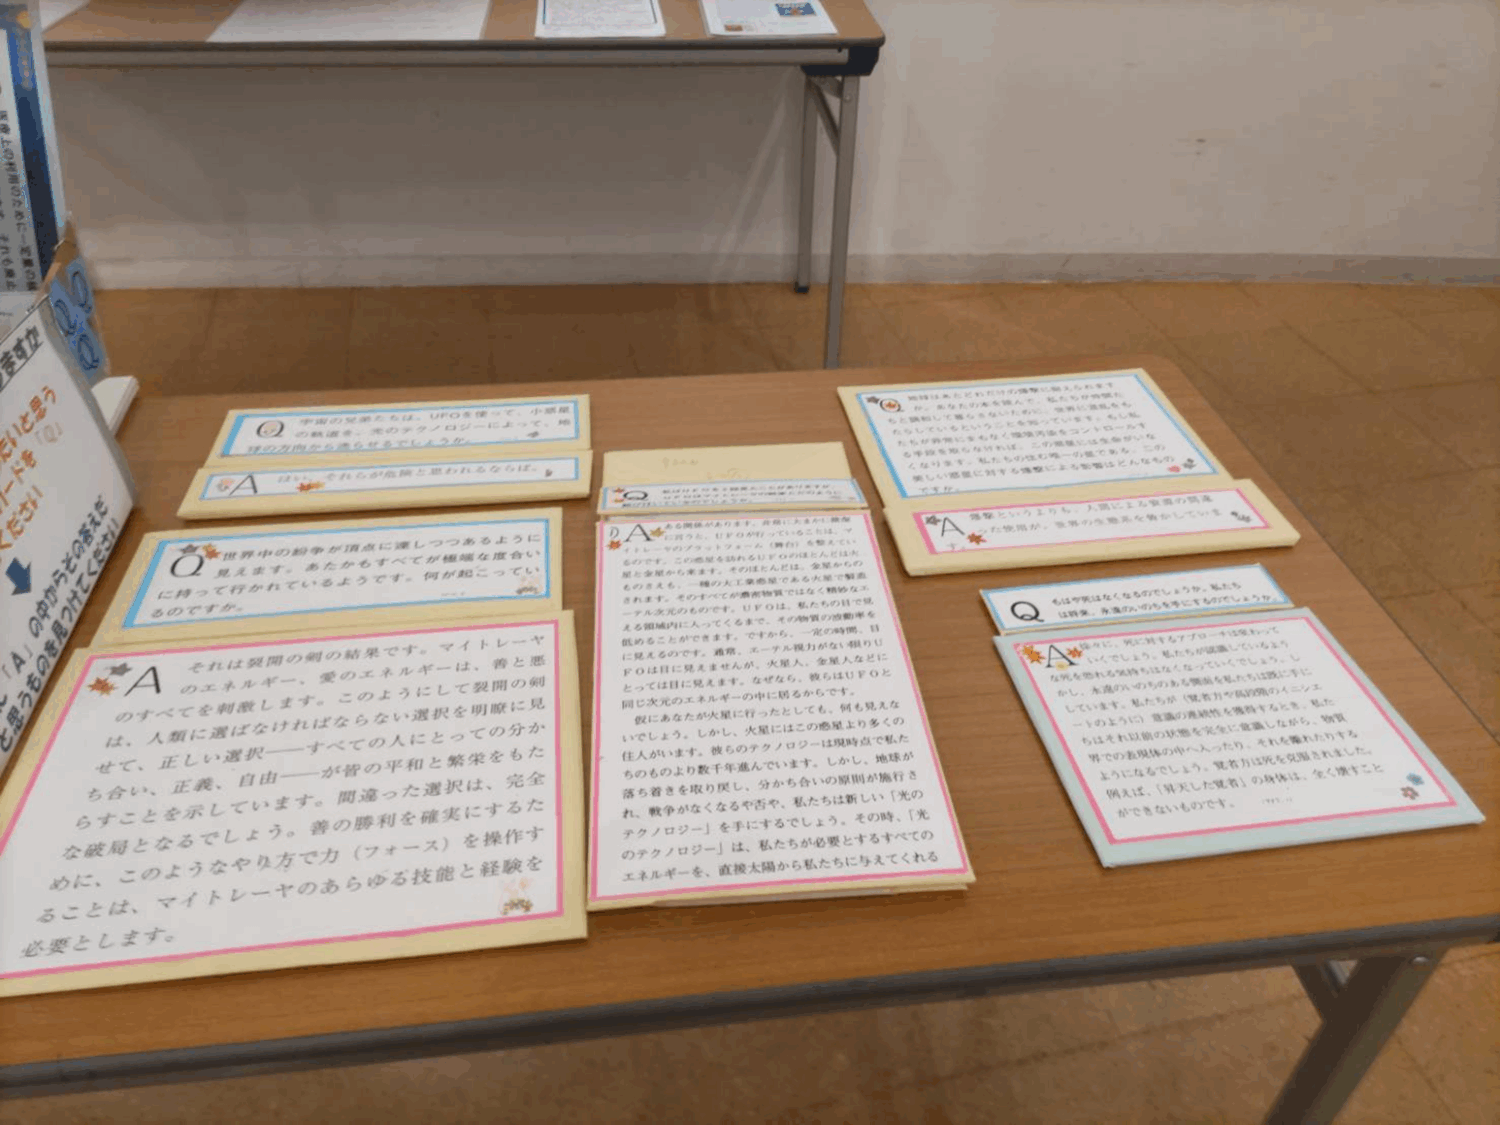 Q
宇宙の兄弟たちは、UFOを使って、小惑星
の軌道を、光のテクノロジーによって、地
球の方向から逸らせるでしょうか。
A
はい、それらが危険と思われるならば。
Q
世界中の紛争が頂点に達しつつあるように
見えます。あたかもすべてが極端な度合い
に持って行かれているようです。何が起こってい
るのですか。
A
それは裂開の剣の結果です。マイトレーヤ
のエネルギー、愛のエネルギーは、善と悪
のすべてを刺激します。このようにして裂開の剣
は、人類に選ばなければならない選択を明瞭に見
せて、正しい選択――すべての人にとっての分か
ち合い、正義、自由――が皆の平和と繁栄をもた
らすことを示しています。間違った選択は、完全
な破局となるでしょう。善の勝利を確実にするた
めに、このようなやり方で力（フォース）を操作す
ることは、マイトレーヤのあらゆる技能と経験を
必要とします。
Q
A
ある関係があります。非常に大まかに簡潔
に言うと、UFOが行っていることは、マ
イトレーヤのプラットフォーム（舞台）を整えてい
るのです。この惑星を訪れるUFOのほとんどは火
星と金星から来ます。そのほとんどは、金星からの
ものさえも、一種の大工業惑星である火星で製造
されます。そのすべてが濃密物質ではなく精妙なエ
ーテル次元のものです。UFOは、私たちの目で見
える領域内に入ってくるまで、その物質の波動率を
低めることができます。ですから、一定の時間、目
に見えるのです。通常、エーテル視力がない限りU
FOは目に見えませんが、火星人、金星人などに
とっては目に見えます。なぜなら、彼らはUFOと
同じ次元のエネルギーの中に居るからです。
仮にあなたが火星に行ったとしても、何も見えな
いでしょう。しかし、火星にはこの惑星より多くの
住人がいます。彼らのテクノロジーは現時点で私た
ちのものより数千年進んでいます。しかし、地球が
落ち着きを取り戻し、分かち合いの原則が施行さ
れ、戦争がなくなるや否や、私たちは新しい「光の
テクノロジー」を手にするでしょう。その時、「光
のテクノロジー」は、私たちが必要とするすべての
エネルギーを、直接太陽から私たちに与えてくれる
Q
地球はあとどれだけの爆撃に耐えられます
か。あなたの本を読んで、私たちが仲間た
ちと調和して暮らさないために、世界に混乱をも
たらしているということを知っています。もし私
たちが非常にまもなく環境汚染をコントロールす
る手段を取らなければ、この惑星には生命がいな
くなります。私たちの住む唯一の星である、この
美しい惑星に対する爆撃による影響はどんなもの
ですか。
A
爆撃というよりも、人間による資源の間違
った使用が、世界の生態系を脅かしていま
す。
Q
もはや死はなくなるのでしょうか。私たち
は将来、永遠のいのちを手にするのでしょうか。
A
徐々に、死に対するアプローチは変わって
いくでしょう。私たちが認識しているよう
な死を恐れる気持ちはなくなっていくでしょう。し
かし、永遠のいのちのある側面を私たちは既に手に
しています。私たちが（覚者方や高段階のイニシエ
ートのように）意識の連続性を獲得するとき、私た
ちはそれ以前の状態を完全に意識しながら、物質
界での表現体の中へ入ったり、それを離れたりする
ようになるでしょう。覚者方は死を克服されました。
例えば、「昇天した覚者」の身体は、全く壊すこと
ができないものです。
ますか
たいと思う
「Q」
カードを
ください
「A」の中からその答えだ
と思うものを見つけてください